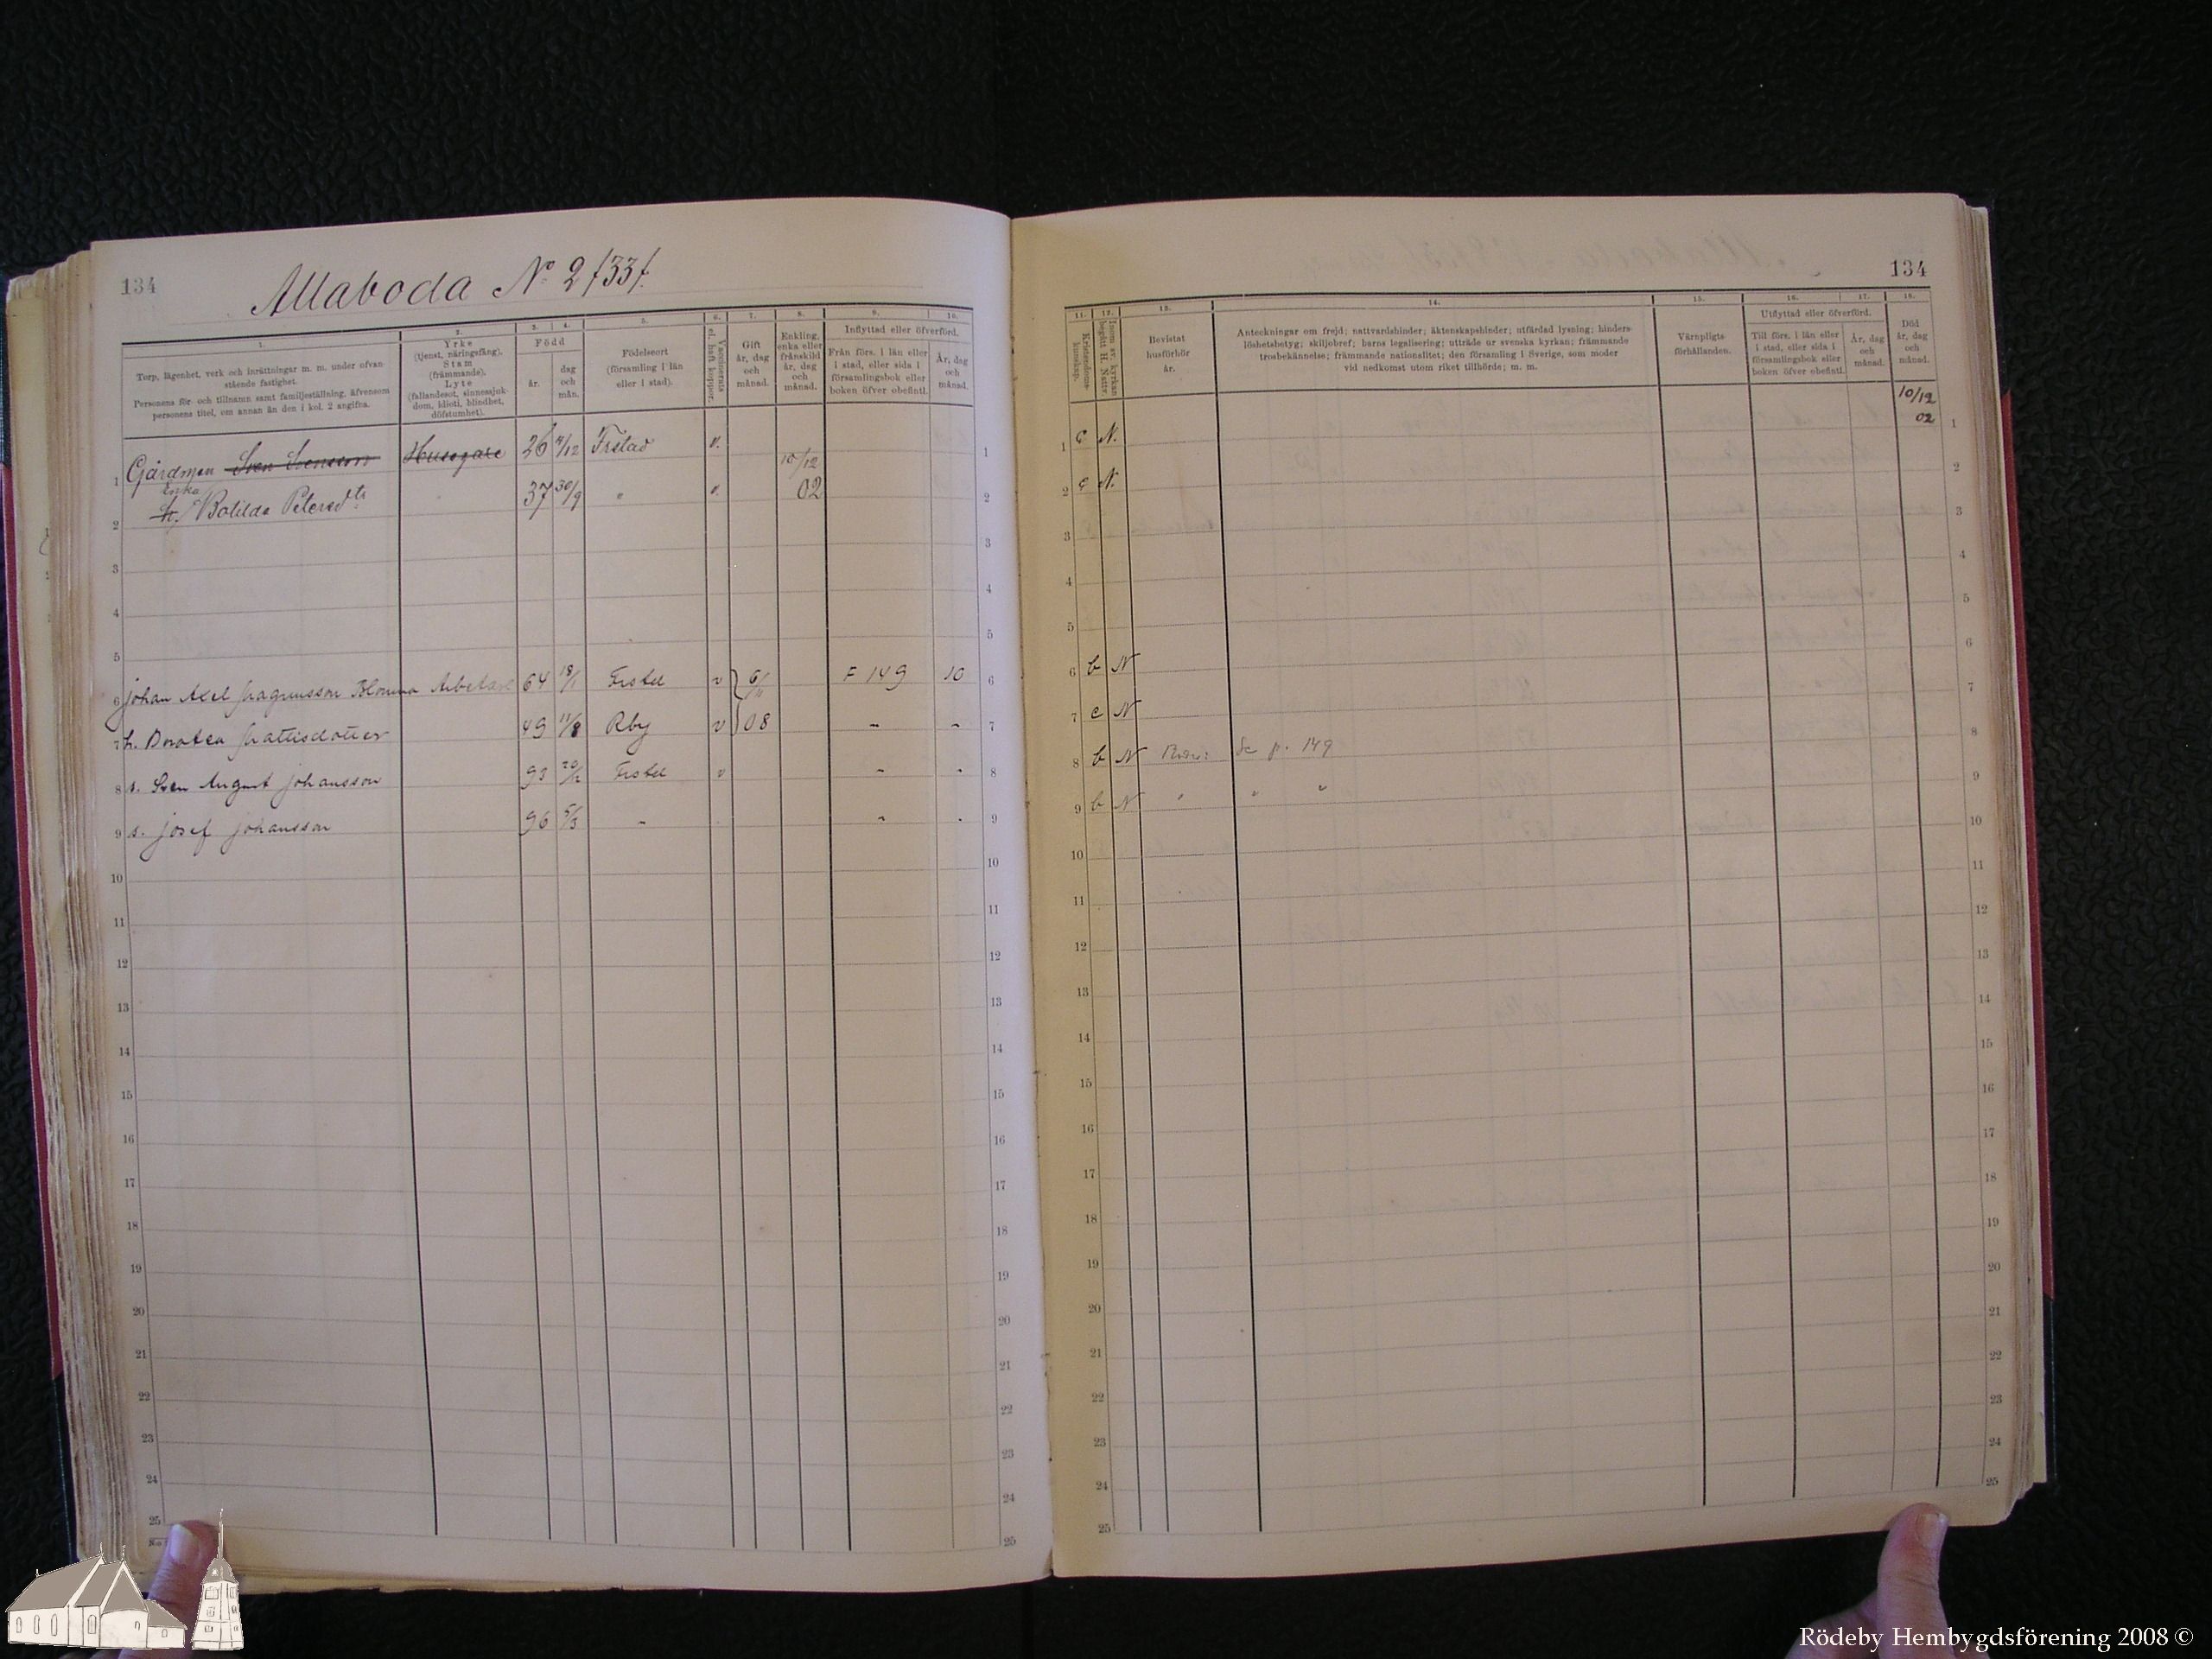 134
Allaboda No 2 /33/.
1.
2.
3.
4.
5.
6.
7.
8.
9.
10.
Torp, lägenhet, verk och inrättningar m. m. under ofvan
stående fastighet.
Personens för- och tillnamn samt familjeställning, äfvensom
personens titel, om annan än den i kol. 2 angifna.
Yrke
(tjenst, näringsfång),
Stam
(främmande),
Lyte
(fallandesot, sinnessjuk-
dom, idioti, blindhet,
döfstumhet).
Född
år.
dag
och
mån.
Födelseort
(församling i län
eller i stad).
Vaccinerats
el. haft koppor.
Gift
år, dag
och
månad.
Enkling,
enka eller
frånskild
år, dag
och
månad.
Inflyttad eller öfverförd.
Från förs. i län eller
i stad, eller sida i
församlingsbok eller
boken öfver obefintl.
År, dag
och
månad.
1 Gårdman Sven Svensson Husegare 26 /12 Frstad v. 1
2 Enka h. Botilda Petersdtr 37 30/9 " v. 10/12 02 2
3 3
4 4
5 5
6 Johan Axel Magnusson Blomma Arbetare 64 18/1 Frstel v 6/11 F 149 10 6
7 h. Dorotea Mattisdotter 49 11/8 Rby v 08 - - 7
8 s. Sven August Johansson 93 20/2 Frstel v - - 8
9 s. Josef Johansson 96 5/3 - - - 9
10 10
11 11
12 12
13 13
14 14
15 15
16 16
17 17
18 18
19 19
20 20
21 21
22 22
23 23
24 24
25 25
134
11.
12.
13.
14.
15.
16.
17.
18.
Kristendoms-
kunskap.
Inom sv. kyrkan
begått H. Nattv.
Bevistat
husförhör
år.
Anteckningar om frejd; nattvardshinder; äktenskapshinder; utfärdad lysning; hinders-
löshetsbetyg; skiljobref; barns legalisering; utträde ur svenska kyrkan; främmande
trosbekännelse; främmande nationalitet; den församling i Sverige, som moder
vid nedkomst utom riket tillhörde; m. m.
Värnpligts-
förhållanden.
Utflyttad eller öfverförd.
Till förs. i län eller
i stad, eller sida i
församlingsbok eller
boken öfver obefintl.
År, dag
och
månad.
Död
år, dag
och
månad.
1 c N. 10/12 02 1
2 c N. 2
3 3
4 4
5 5
6 b N 6
7 c N 7
8 b N Se p. 149 8
9 b N " " " 9
10 10
11 11
12 12
13 13
14 14
15 15
16 16
17 17
18 18
19 19
20 20
21 21
22 22
23 23
24 24
25 25
Rödeby Hembygdsförening 2008 ©